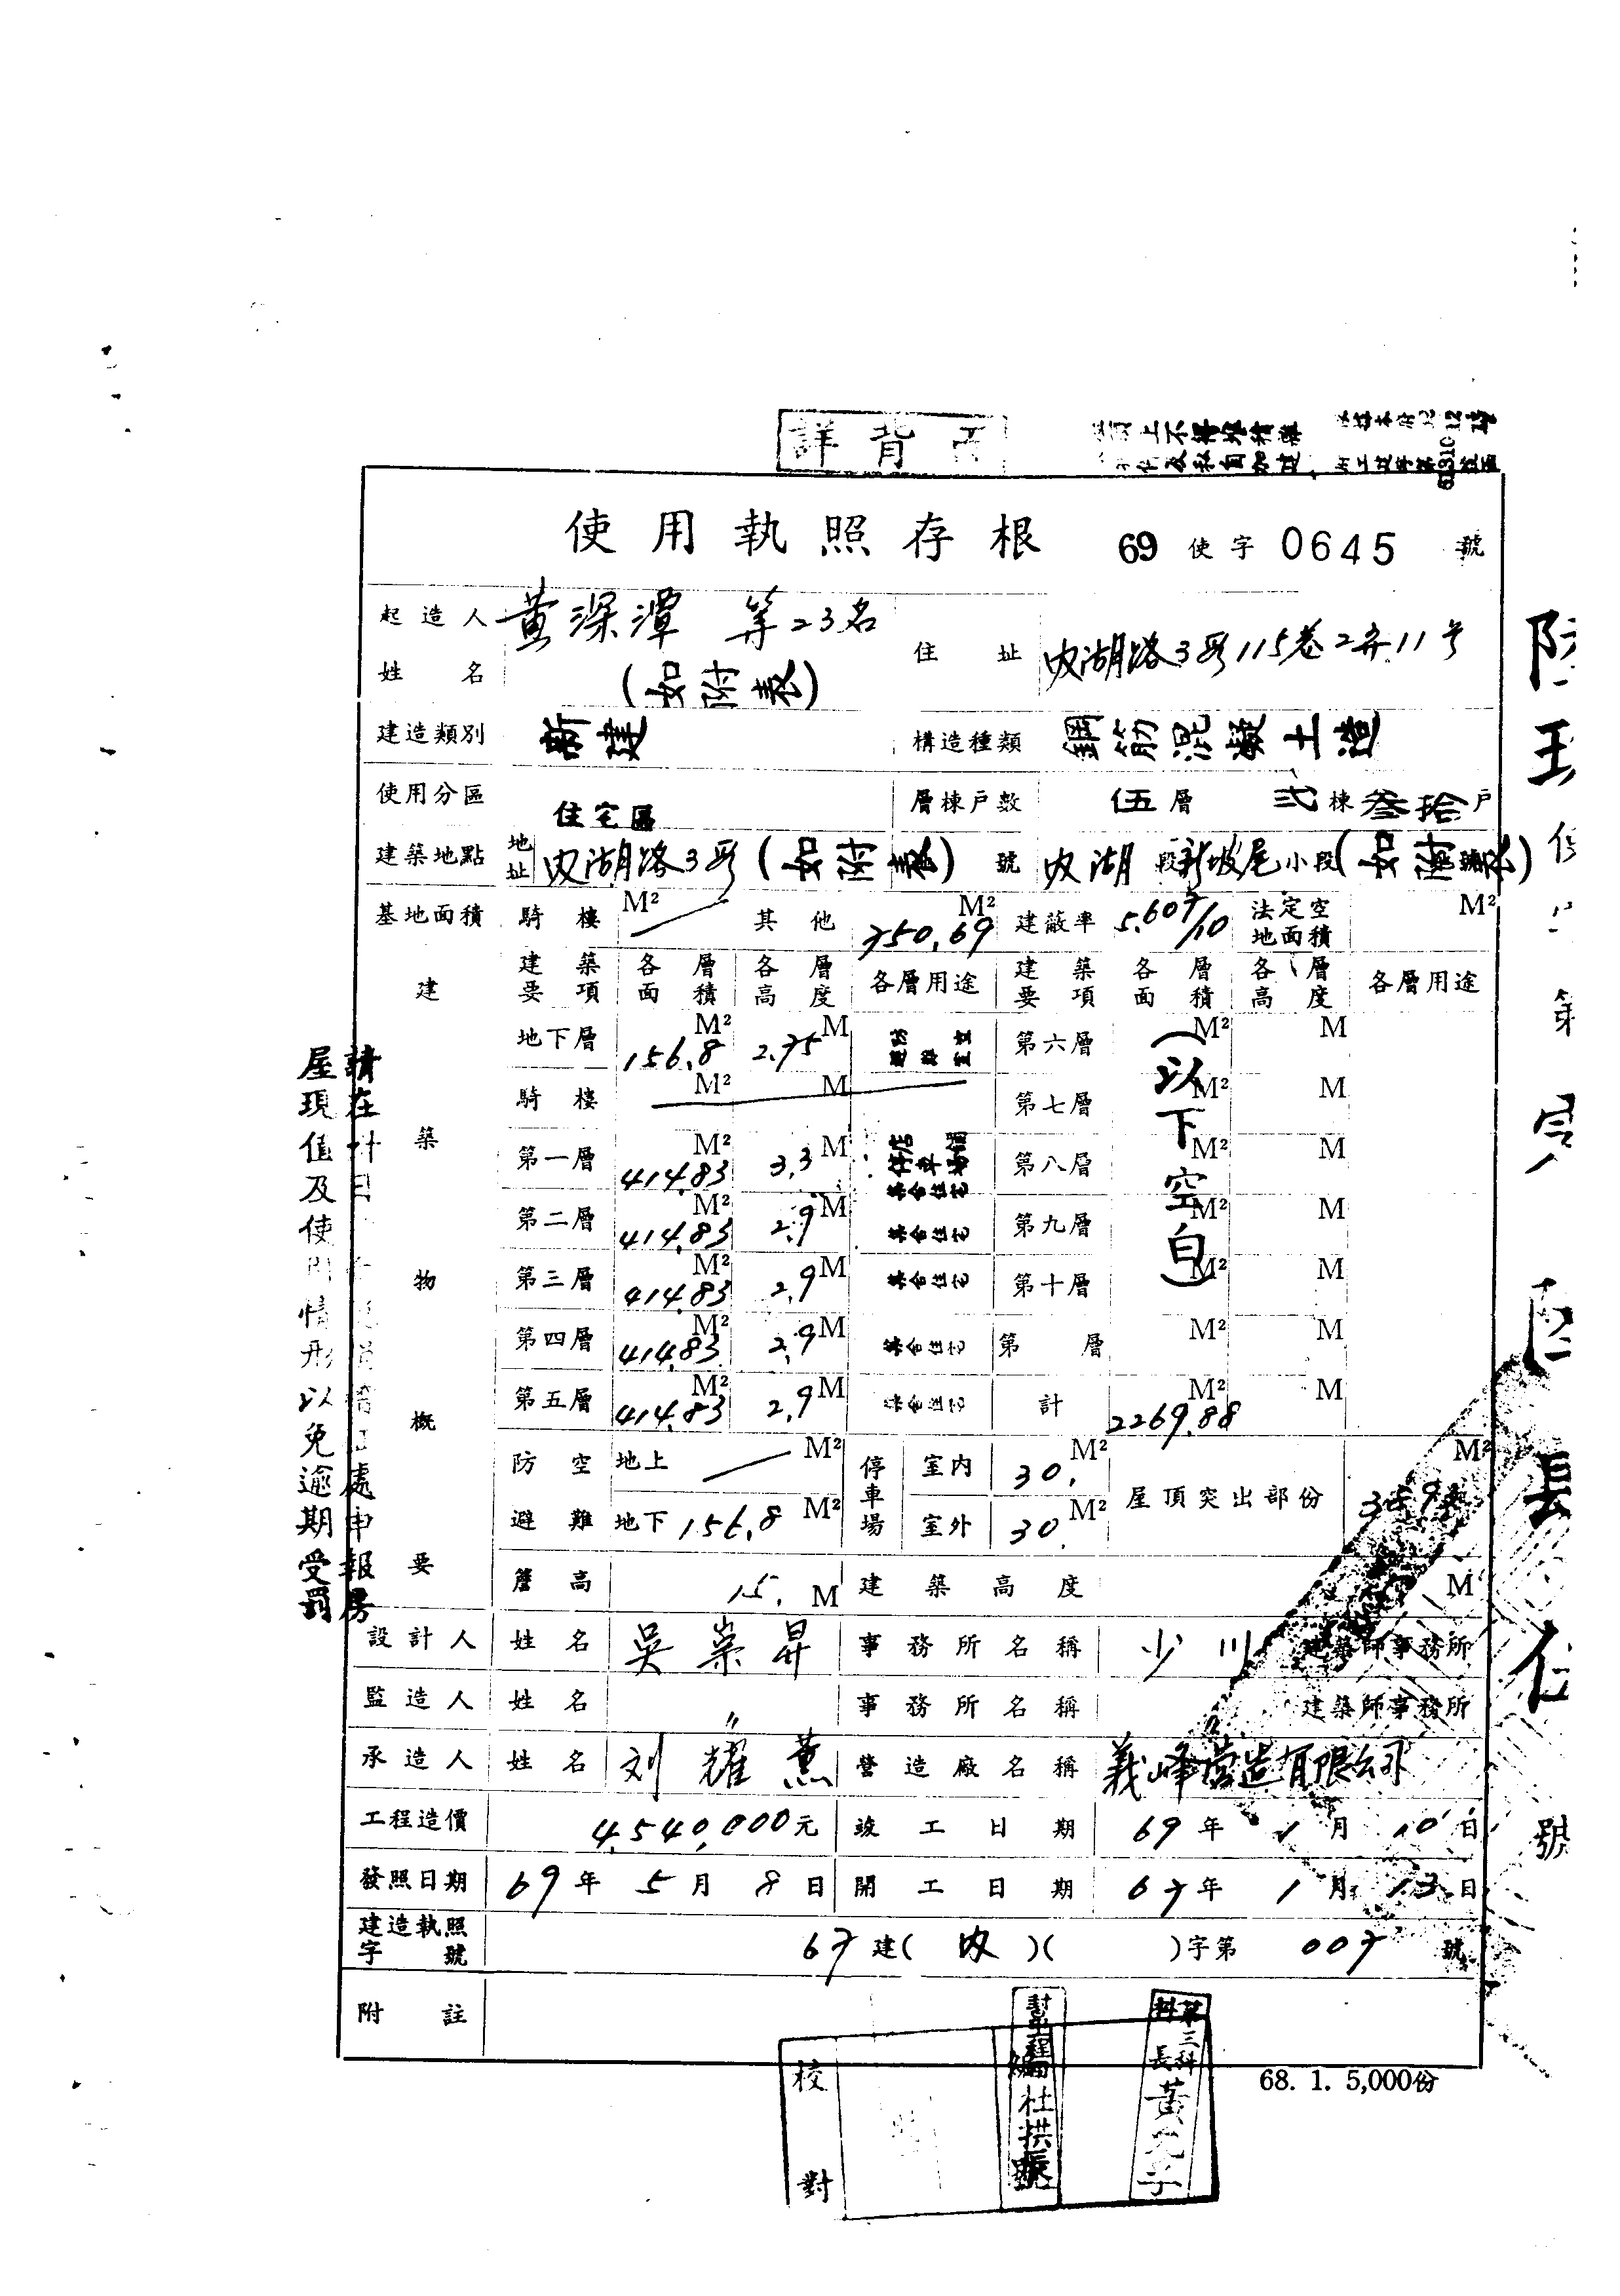 詳背面
使用執照存根 69 使字 0645 號
起造人姓名 黃深潭 等23名 (如附表) 住址 內湖路3段115巷2弄11号
建造類別 新建 構造種類 鋼筋混凝土造
使用分區 住宅區 層棟戶數 伍層 弍棟 叁拾戶
建築地點 地址 內湖路3段(如附表)號 內湖段新坡尾小段(如附表)
基地面積 騎樓 M² 其他 M² 750.69 建蔽率 5.607/10 法定空地面積 M²
建築物概要
建築要項 各層面積 各層高度 各層用途 建築要項 各層面積 各層高度 各層用途
地下層 156.8 M² 2.75 M 第六層 M² M
騎樓 M² M 第七層 M² M
第一層 414.83 M² 3.3 M 集合住宅 第八層 M² M
第二層 414.83 M² 2.9 M 集合住宅 第九層 M² M
第三層 414.83 M² 2.9 M 集合住宅 第十層 M² M
第四層 414.83 M² 2.9 M 集合住宅 第 層 M² M
第五層 414.83 M² 2.9 M 集合住宅 計 2269.88 M² M
(以下空白)
防空避難 地上 M² 停車場 室內 30. M² 屋頂突出部份 M²
地下 156.8 M² 室外 30. M²
簷高 15. M 建築高度 M
設計人 姓名 吳崇昇 事務所名稱 少川 建築師事務所
監造人 姓名 〃 事務所名稱 〃 建築師事務所
承造人 姓名 刘耀薰 營造廠名稱 義峰營造有限公司
工程造價 4,540,000元 竣工日期 69年1月10日
發照日期 69年5月8日 開工日期 67年1月13日
建造執照字號 67建(內)( )字第007號
附註
68. 1. 5,000份
校對
第三科科長黃
屋現值及使用情形以免逾期受罰
處申報房
號